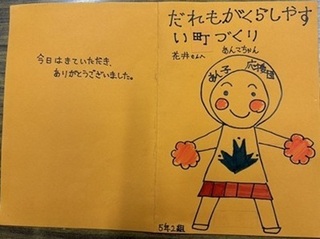 今日はきていただき、
ありがとうございました。
だれもがくらしやす
い町づくり
あんこちゃん
花井さんへ
応援団
5年2組